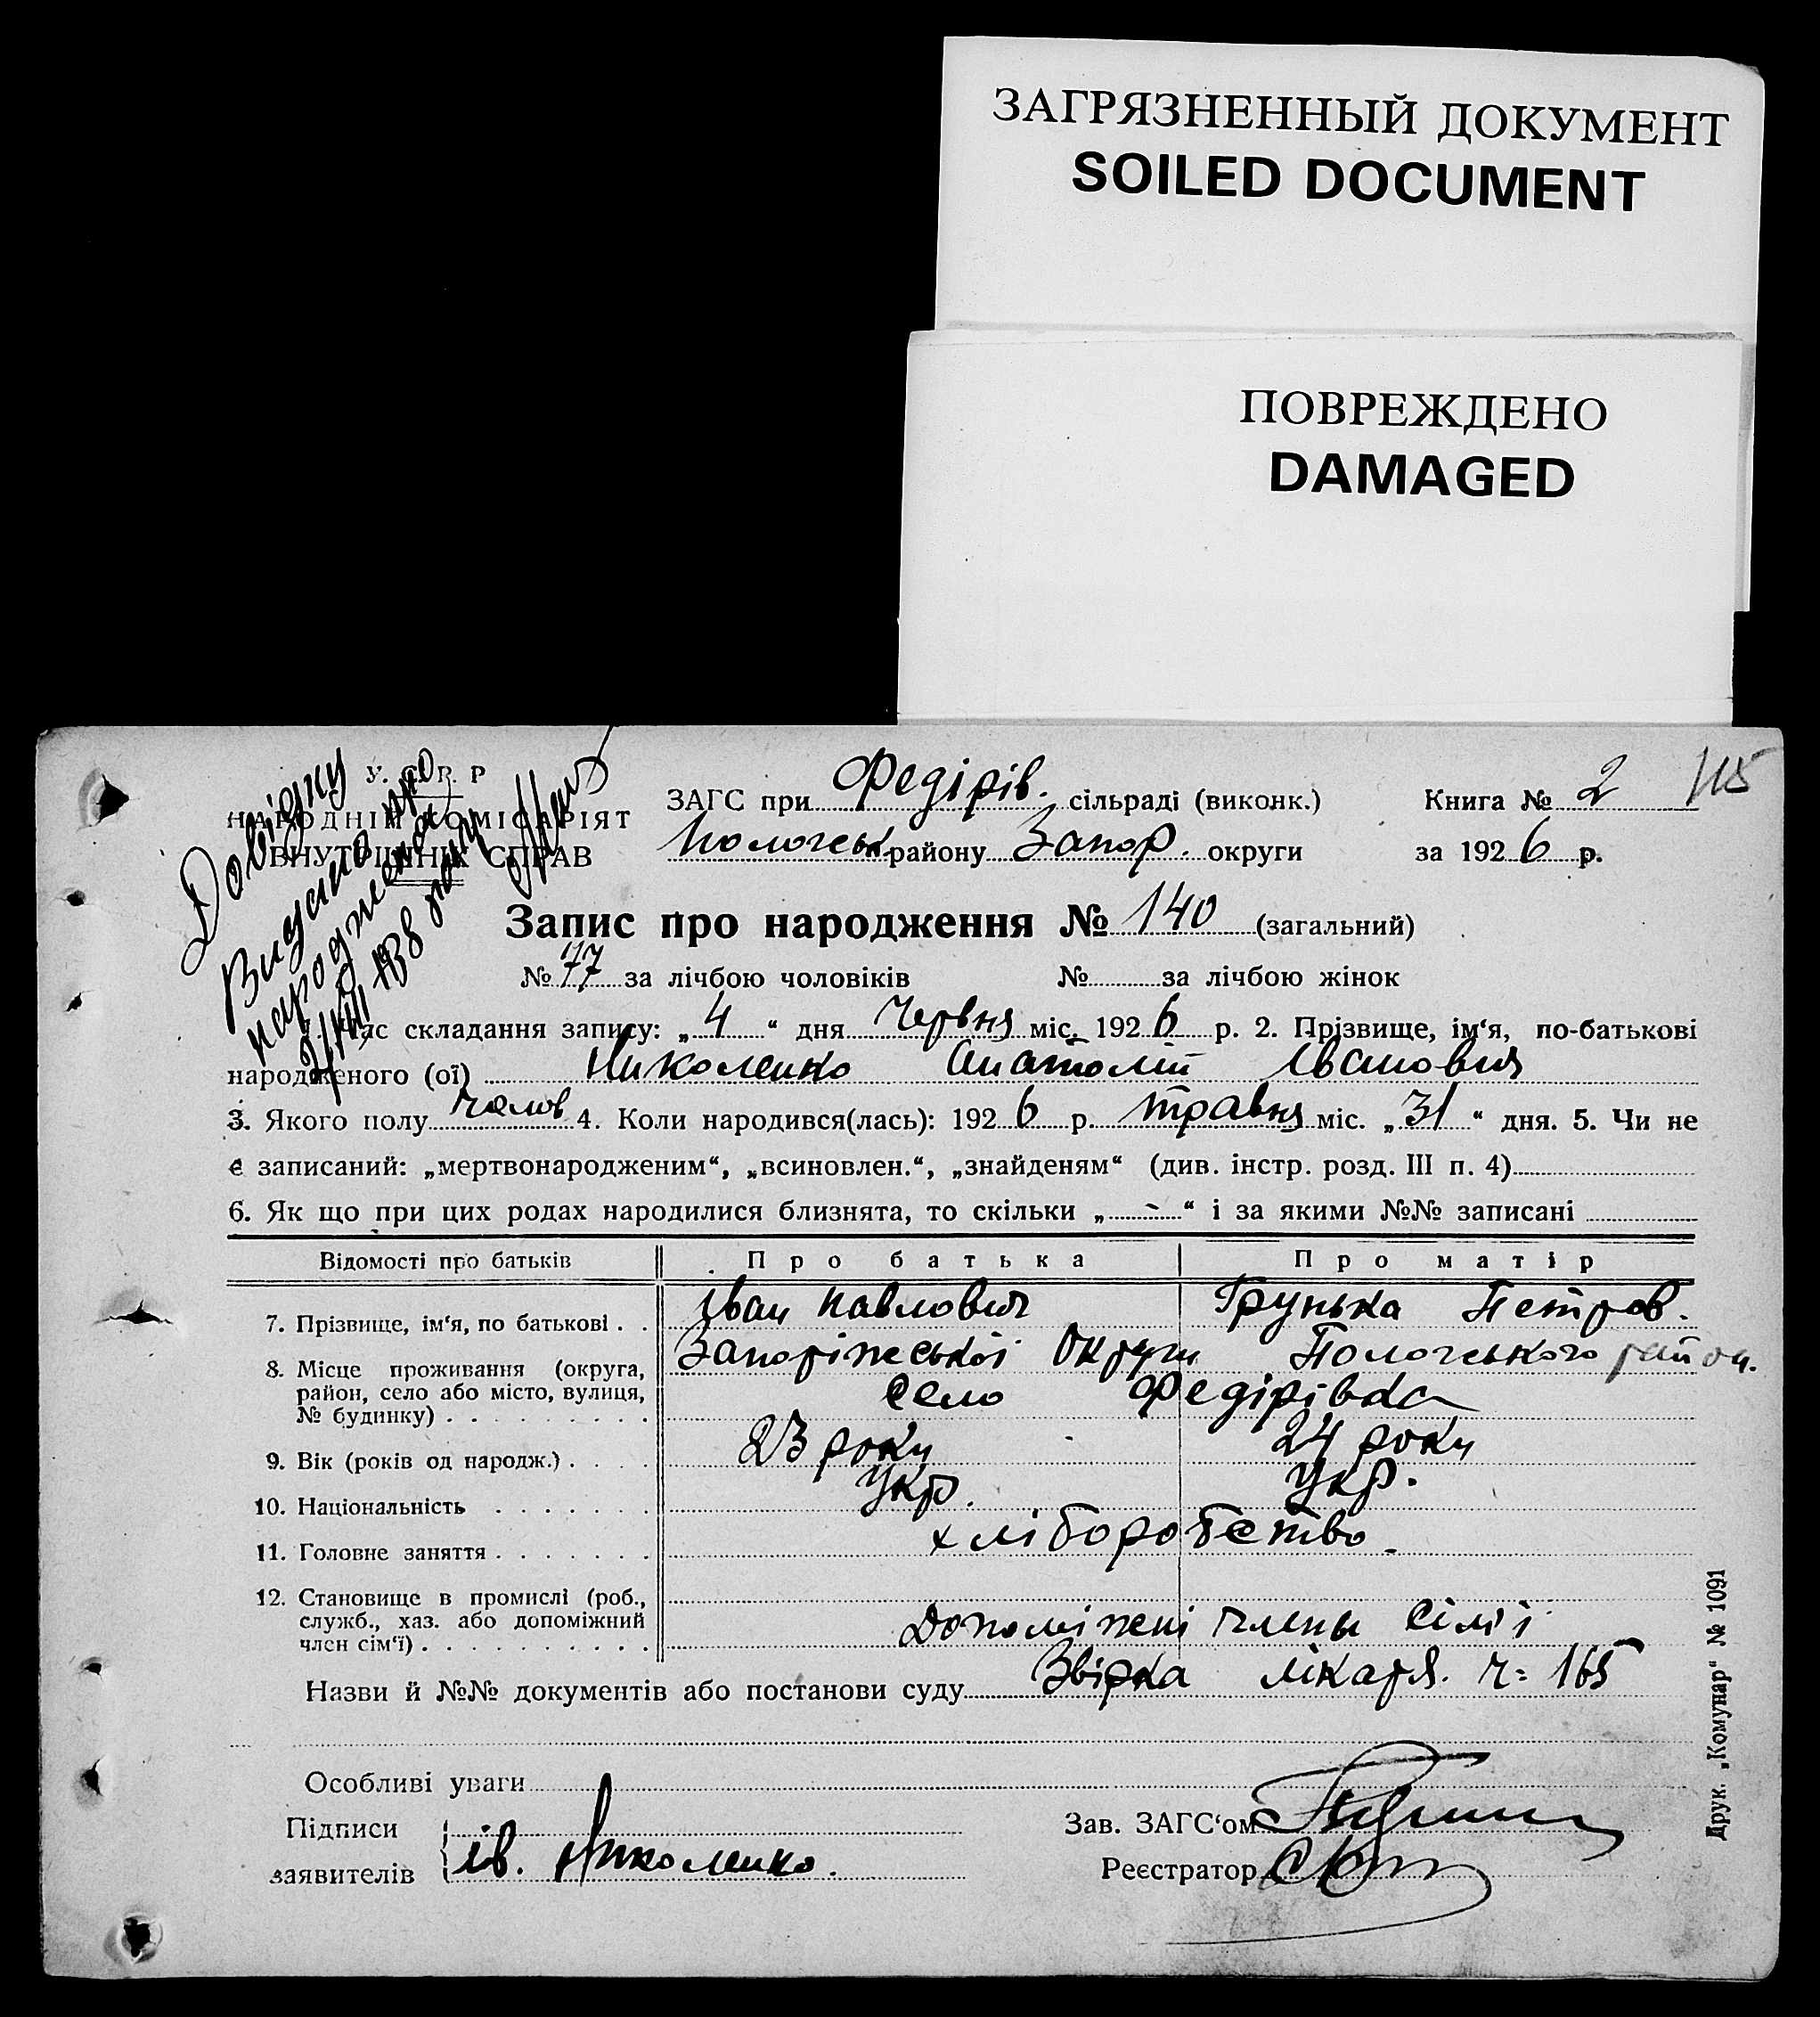 ЗАГРЯЗНЕННЫЙ ДОКУМЕНТ
SOILED DOCUMENT
ПОВРЕЖДЕНО
DAMAGED
115
У. С. Р. Р
НАРОДНІЙ КОМІСАРІЯТ
ВНУТРІШНІХ СПРАВ
Довідку
Видано про
народження
2/VIII 1938 року
ЗАГС при Федірів. сільраді (виконк.) Книга № 2
Пологськ. району Запор. округи за 1926 р.
Запис про народження № 140 (загальний)
№ 77 за лічбою чоловіків № за лічбою жінок
1. Час складання запису: „4“ дня Червня міс. 1926 р. 2. Прізвище, ім‘я, по-батькові
народженого (ої) Николенко Анатолій Іванович
3. Якого полу чолов 4. Коли народився(лась): 1926 р. травня міс. „31“ дня. 5. Чи не
є записаний: „мертвонародженим“, „всиновлен.“, „знайденям“ (див. інстр. розд. III п. 4)
6. Як що при цих родах народилися близнята, то скільки „ - “ і за якими №№ записані
Відомості про батьків Про батька Про матір
7. Прізвище, ім‘я, по батькові . . Іван Павлович Грунька Петров.
8. Місце проживання (округа, район, село або місто, вулиця, № будинку) Запоріжської Округи Пологського район.
село Федірівка
9. Вік (років од народж.) 23 роки 24 роки
10. Національність Укр. Укр.
11. Головне заняття хліборобство
12. Становище в промислі (роб., служб., хаз. або допоміжний член сім‘ї) Допоміжні члены сімї
Назви й №№ документів або постанови суду Звірка лікаря. ч= 165
Особливі уваги
Підписи
заявителів Ів. Николенко.
Зав. ЗАГС‘ом
Реєстратор
Друк. „Комунар“ № 1091